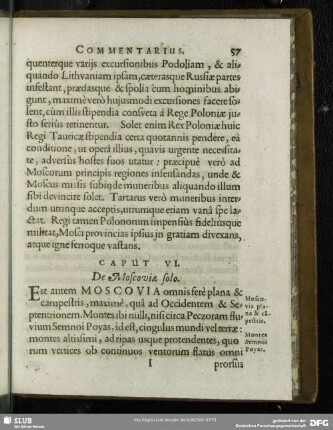 COMMENTARIUS. 57
quenterque varijs excursionibus Podoliam, & ali-
quando Lithvaniam ipsam, cæterasque Russiæ partes
infestant, prædasque & spolia cum hominibus abi-
gunt, maximè verò hujusmodi excursiones facere so-
lent, cùm illis stipendia consveta á Rege Poloniæ ju-
sto seriùs retinentur. Solet enim Rex Poloniæ huic
Regi Tauricæ stipendia certa quotannis pendere, eâ
conditione, ut operâ illius, quavis urgente necessita-
te, adversus hostes suos utatur: præcipuè verò ad
Moscorum principis regiones infensandas, unde &
Moscus missis subinde muneribus aliquando illum
sibi devincire solet. Tartarus verò muneribus inter-
dum utrinque acceptis, utrumque etiam vanâ spe la-
ctat. Regi tamen Polonorum impensiùs fideliusque
militat, Mosci provincias ipsius in gratiam divexans,
atque igne ferroque vastans.
CAPUT VI.
De Moscoviæ solo.
Est autem MOSCOVIA omnis ferè plana &
campestris, maximè, quâ ad Occidentem & Se-
ptentrionem. Montes ibi nulli, nisi circa Peczoram flu-
vium Semnoi Poyas, id est, cingulus mundi vel terræ:
montes altissimi, ad ripas usque protendentes, quo
rum vertices ob continuos ventorum flatus omni
Mosco-
via pla-
na & cã-
pestris.
Montes
Semnoi
Poyas.
I prorsus
SLUB
Wir führen Wissen.
http://digital.slub-dresden.de/
gefördert von der
Deutschen Forschungsgemeinschaft
DFG